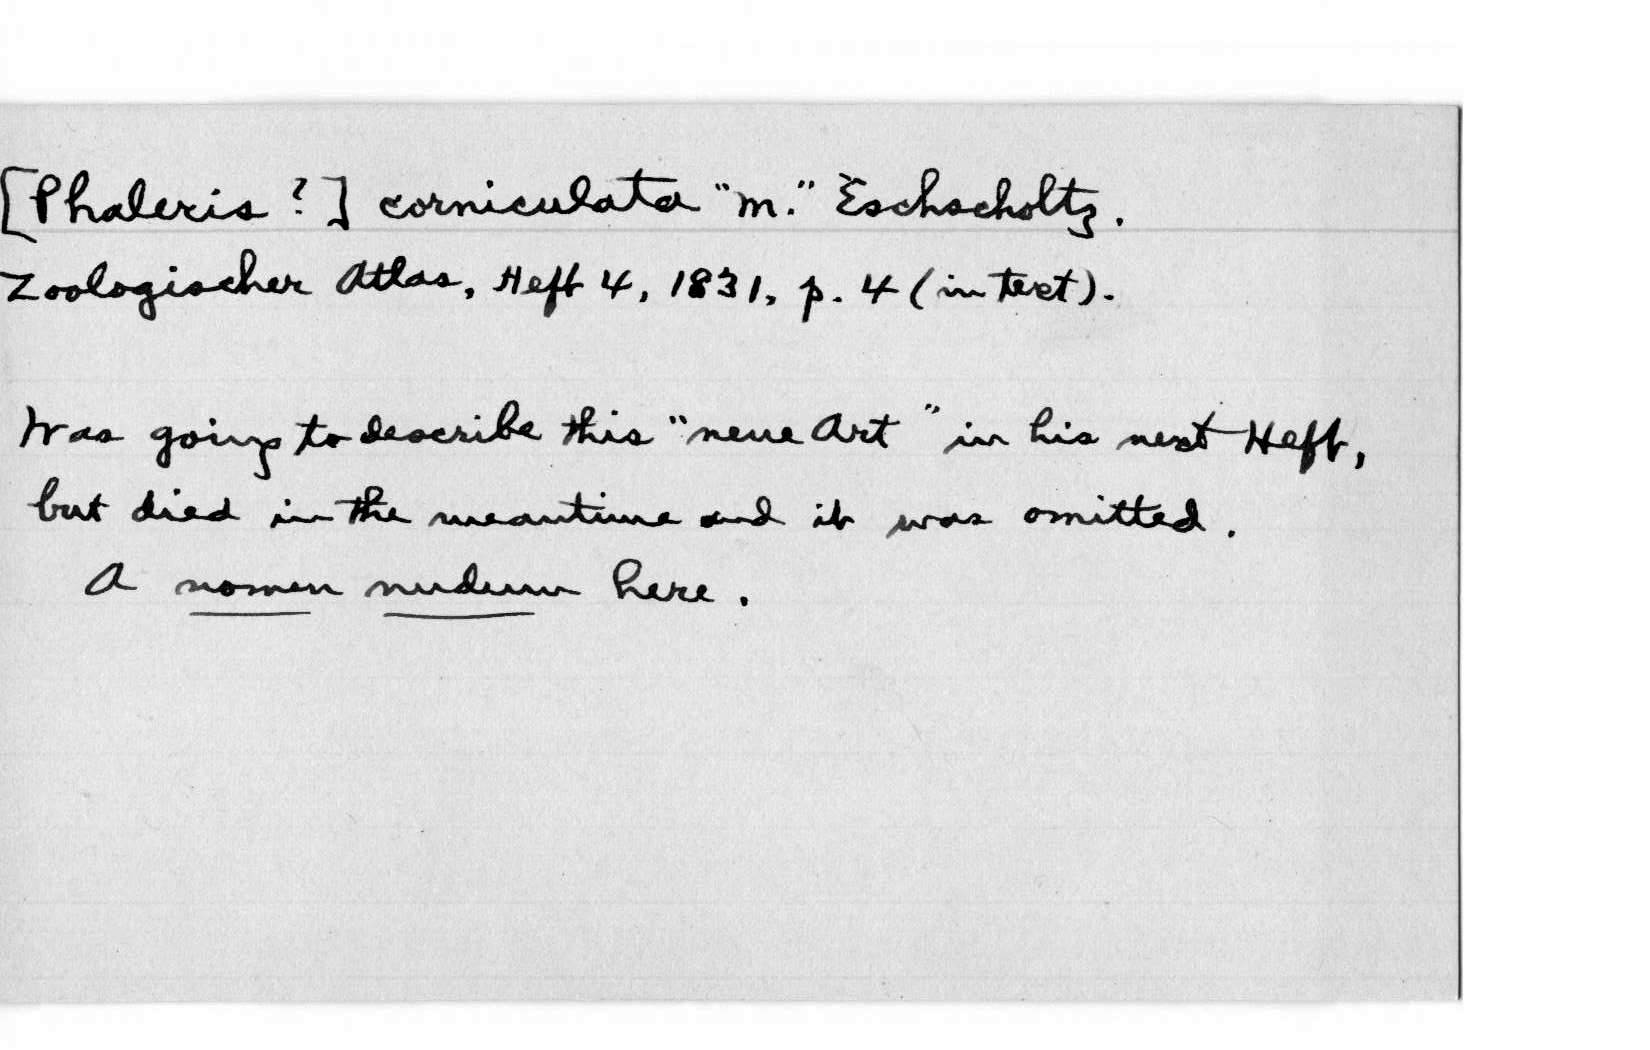 [Phaleris ?] corniculata "m." Eschscholtz.
Zoologischer Atlas, Heft 4, 1831, p. 4 (in text).
Was going to describe this "neue Art" in his next Heft,
but died in the meantime and it was omitted.
A nomen nudum here.